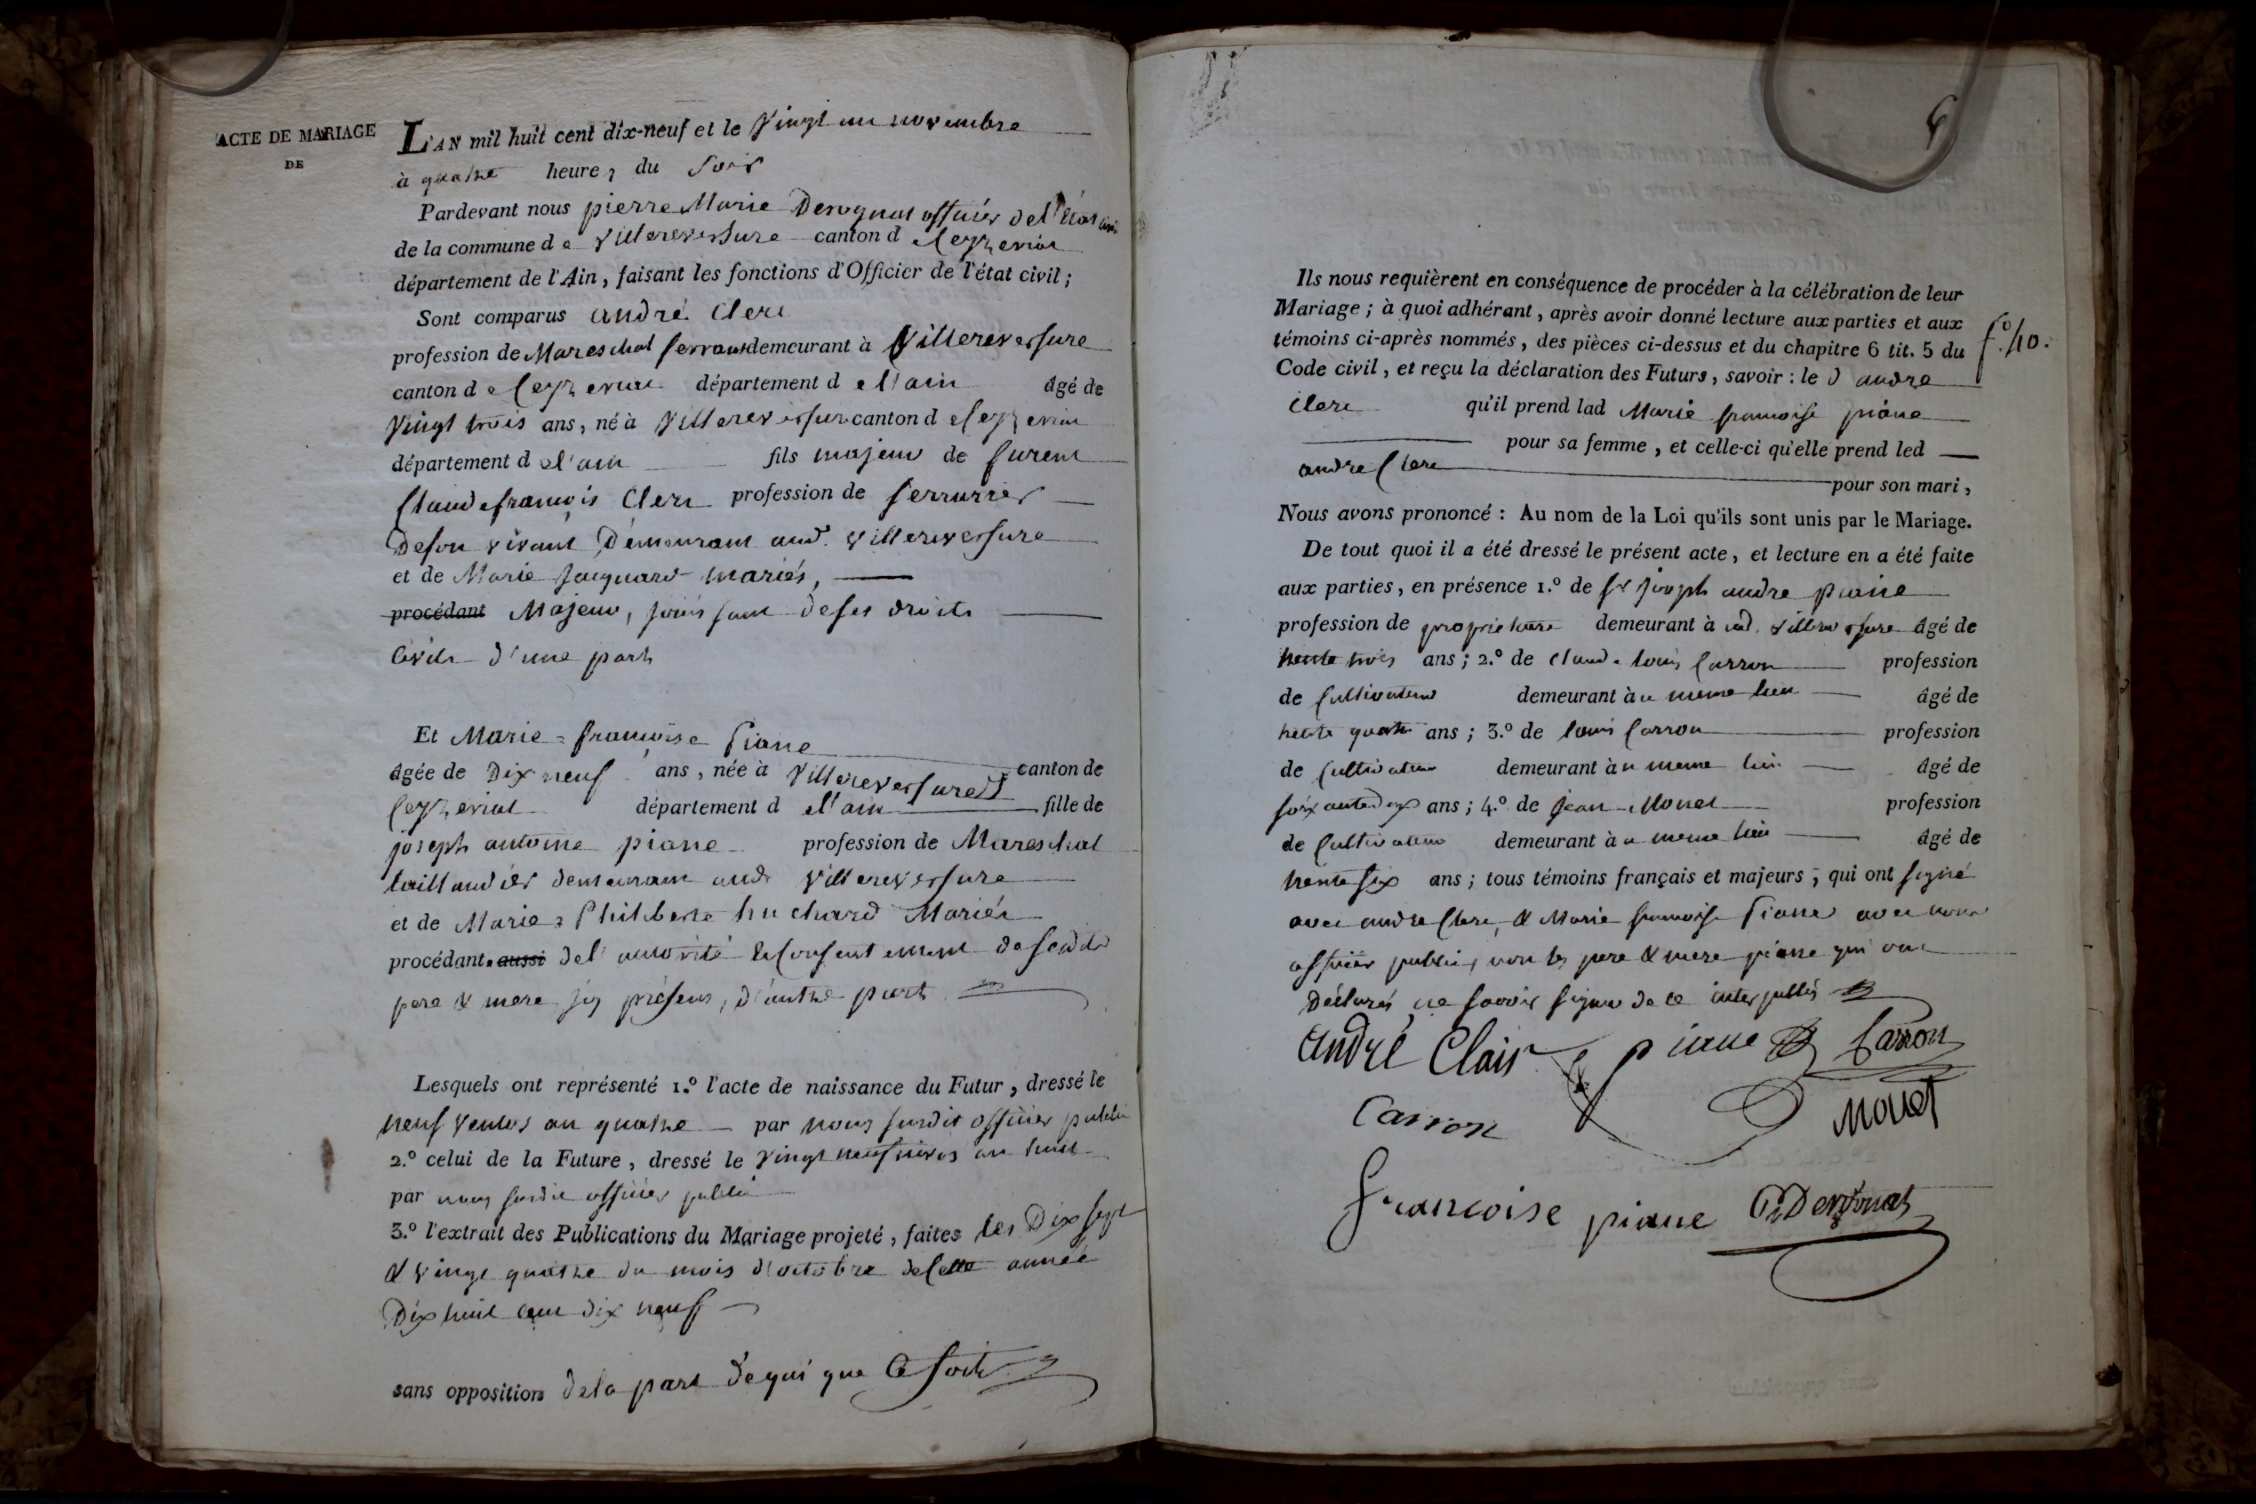 ACTE DE MARIAGE
DE
L'AN mil huit cent dix-neuf et le vingt un novembre
à quatre heures du soir
Pardevant nous pierre Marie Derognat officier de l'état civil
de la commune de villereversure canton de Ceyzeriat
département de l'Ain, faisant les fonctions d'Officier de l'état civil ;
Sont comparus andré Clerc
profession de Mareschal ferrant demeurant à Villereversure
canton de Ceyzeriat département de l'ain âgé de
vingt trois ans, né à villereversure canton de Ceyzeriat
département de l'ain fils majeur de furent
Claude françois Clerc profession de serrurier
De son vivant Demeurant aud. villereversure
et de Marie Jacquard mariés,
procédant Majeur, jouissant de ses droits
Civils d'une part
Et Marie = françoise Piane
âgée de Dix neuf ans, née à villereversure canton de
Ceyzeriat département de l'ain fille de
joseph antoine piane profession de Mareschal
taillandier demeurant aud. villereversure
et de Marie = Philiberte huchard Mariés
procédant aussi de l'autorité & consentement de sesdts
pere & mere presens, d'autre part
Lesquels ont représenté 1.º l'acte de naissance du Futur, dressé le
neuf ventos an quatre par nous susdit officier public
2.º celui de la Future, dressé le vingt neuf nivos an huit
par nous susdit officier public
3.º l'extrait des Publications du Mariage projeté, faites les Dix sept
& vingt quatre du mois d'octobre de Cette année
Dix huit cent dix neuf
sans opposition de la part de qui que Ce soit
Ils nous requièrent en conséquence de procéder à la célébration de leur
Mariage ; à quoi adhérant, après avoir donné lecture aux parties et aux
témoins ci-après nommés, des pièces ci-dessus et du chapitre 6 tit. 5 du
fº. 10.
Code civil, et reçu la déclaration des Futurs, savoir : le d andre
Clerc qu'il prend lad Marie françoise piane
pour sa femme, et celle-ci qu'elle prend led
andre Clerc
pour son mari,
Nous avons prononcé : Au nom de la Loi qu'ils sont unis par le Mariage.
De tout quoi il a été dressé le présent acte, et lecture en a été faite
aux parties, en présence 1.º de sr joseph andre piane
profession de proprietaire demeurant à aud. villereversure âgé de
trente trois ans ; 2.º de claude louis Carron profession
de Cultivateur demeurant à u meme lieu âgé de
trente quatre ans ; 3.º de louis Carron profession
de Cultivateur demeurant à u meme lieu âgé de
soixante dix ans ; 4.º de jean Monet profession
de Cultivateur demeurant à u meme lieu âgé de
trente six ans ; tous témoins français et majeurs, qui ont signé
avec andre Clerc, & Marie francoise Piane avec nous
officier public, non les pere & mere piane qui ont
Déclarés ne savoir signer de ce interpellés
André Clair piane Carron
Carron Monet
francoise piane P. Derognat